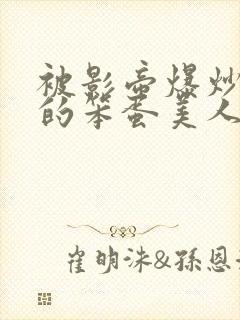 被影帝爆炒
的笨蛋美人
崔明洙&孫恩